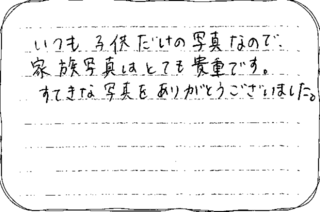 いつも子供だけの写真なので、
家族写真はとても貴重です。
すてきな写真をありがとうございました。